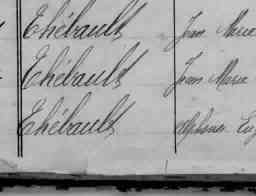 Thébault Jean Marie
Thébault Jean Marie
Thébault Alphonse